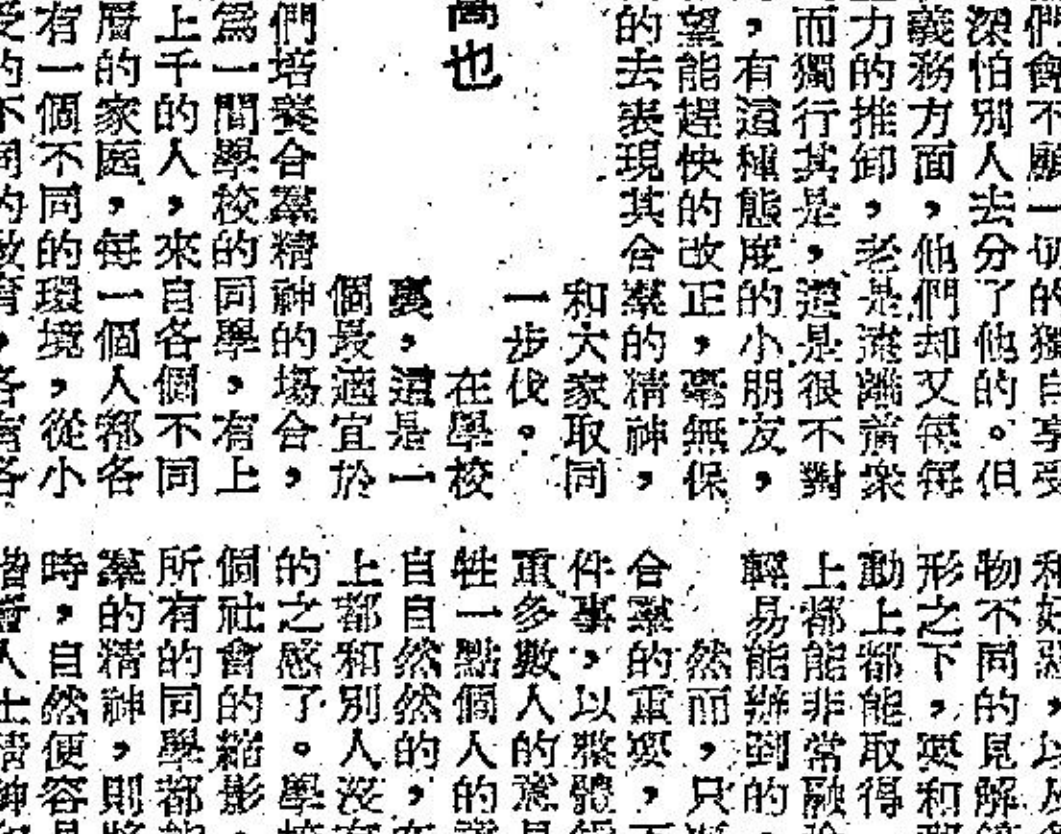 們會不願一切的獨自享受
深怕別人去分了他的。但
義務方面，他們却又每每
力的推卸，老是離羣衆
而獨行其是，還是很不對
，有這種態度的小朋友，
望能趕快的改正，毫無保
的去表現其合羣的精神，
和大家取同
一步伐。
萬也
在學校
裏，這是一
個最適宜於
們培養合羣精神的場合，
爲一間學校的同學，有上
上千的人，來自各個不同
層的家庭，每一個人都各
有一個不同的環境，從小
受的不同的教育，各有各
和好惡，以及
物不同的見解
形之下，要和
動上都能取得
上都能非常融
輕易能辦到的
然而，只
合羣的重要，
件事，以整體
重多數人的意
牲一點個人的
自自然然的，
上都和別人沒
的之感了。學
個社會的縮影
所有的同學都
羣的精神，則
時，自然便容
人士精神